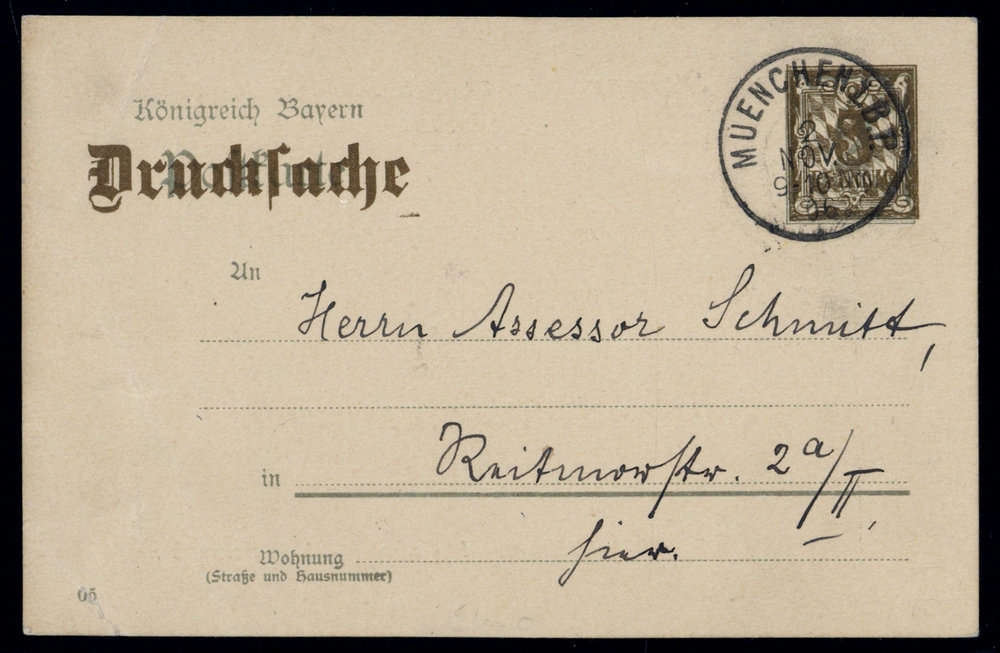 Königreich Bayern
Drucksache
MUENCHEN I.B.P.
2
NOV.
9-10
06
3
An
Herrn Assessor Schmitt,
in
Reitmorstr. 2a/II,
hier.
Wohnung
(Straße und Hausnummer)
05